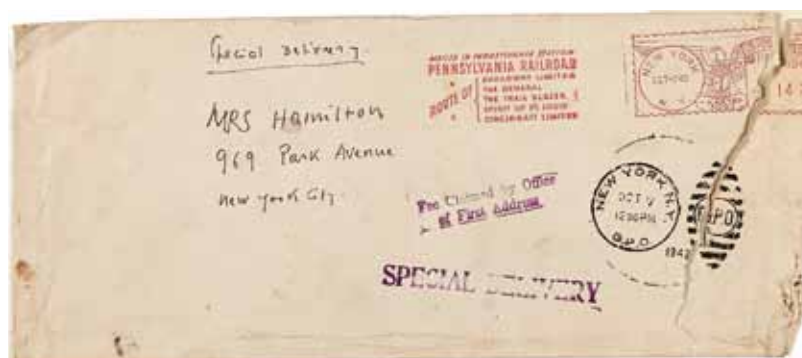 Special Delivery.
MRS Hamilton
969 Park Avenue
New York City.
PENNSYLVANIA RAILROAD
ROUTE OF
BROADWAY LIMITED
THE GENERAL
THE TRAIL BLAZER
SPIRIT OF ST. LOUIS
CINCINNATI LIMITED
NEW YORK
N.Y.
14
Fee Claimed by Office
of First Address.
NEW YORK, N.Y.
OCT 9
12 PM
G.P.O.
194
G.P.O
SPECIAL DELIVERY